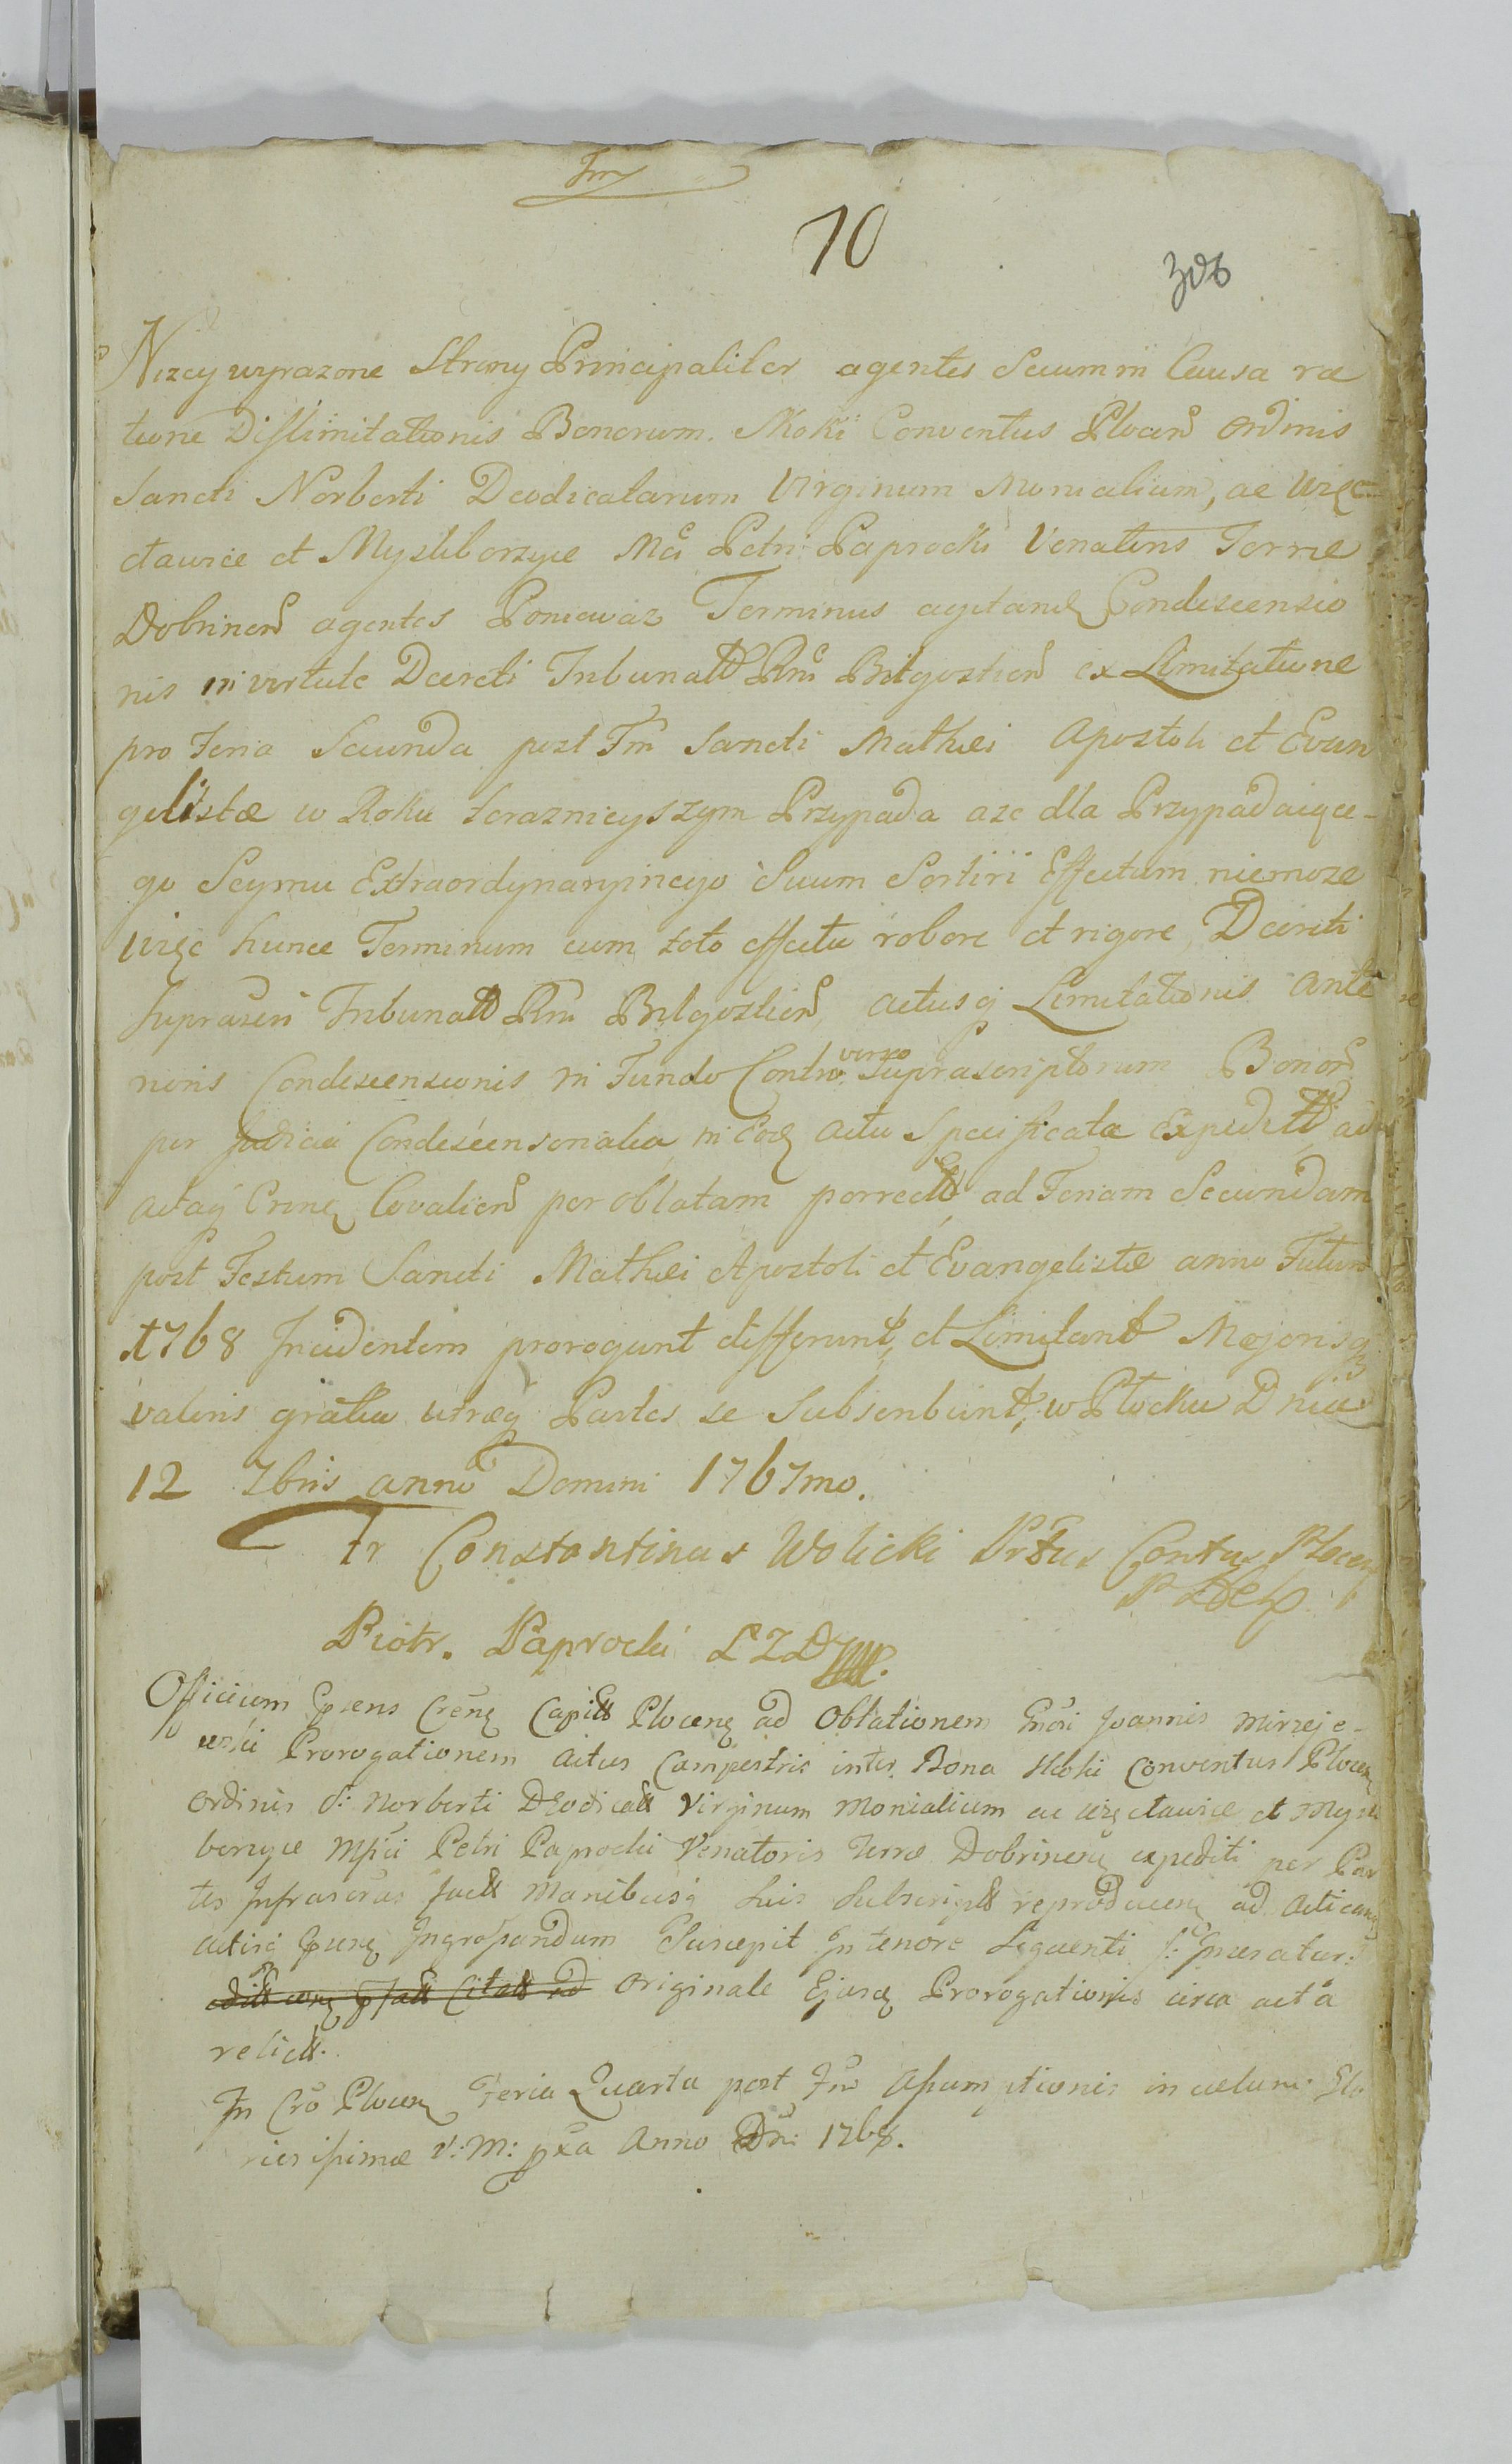 10
306
Nizey wyrazone Strony Principaliter agentes Secum in Causa ra
tione Disslimitationis Bonorum Skoki Conventus Plocen Ordinis
Sancti Norberti Deodicatarum Virginum Monialium, ac Więc-
ctawice et Mysliborzyce Mci Petri Paprocki Venatoris Terræ
Dobrinen agentes Poniewaz Terminus agitand Condescensio
nis in virtute Decreti Tribunalis Rni Bidgostien ex Limitatione
pro Feria Secunda post Fm Sancti Mathæi Apostoli et Evan
gelistæ w Roku teraznieyszym Przypada aze dla Przypadaiące-
go Seymu Extraordynaryinego Suum Sortiri Effectum niemoze
więc hunce Terminum cum toto effectu robore et rigore Decreti
suprascri Tribunal Rni Bidgostien, actusq Limitationis Ante
rioris Condescensionis in Fundo Controverso Suprascriptorum Bonor
per Judicia Condescensonalia in Eod actu Specificata Expedit ad
actaq Crine Covalien per oblatam porrect ad Feriam Secundam
post Festum Sancti Mathæi Apostoli et Evangelistæ anno Futuro
1768 Incidentem prorogunt differunt et Limitant Majorisq
valoris gratia utræq Partes se Subscribunt, w Płocku Dnia
12 7bris anno Domini 1767mo.
Fr Constantinus Wolicki Prtus Contus Plocen
Piotr. Paprocki Ł Z D
Officium Ppsens Crene Capit Plocene ad Oblationem Gnosi Joannis Mirzeje-
wski Prorogationem Actus Campestris inter Bona Skoki Conventus Plocen
Ordinis S: Norberti Deodicat Virginum Monialium ac Więctawice et Mysli
borzyce Mfici Petri Paprocki Venatoris Terræ Dobrinen expediti per Par
tes Infrascras fact Manibusq Suis Subscript reproducen ad Acticand
actisq Ppsene Ingrossandum Suscepit In tenore Sequenti
Originale Ejusd Prorogationis circa acta
relict.
In Cro Plocen Feria Quarta post Fm Assumptionis in cælum Glo
riosissimæ V: M: pxa Anno Dni 1768.